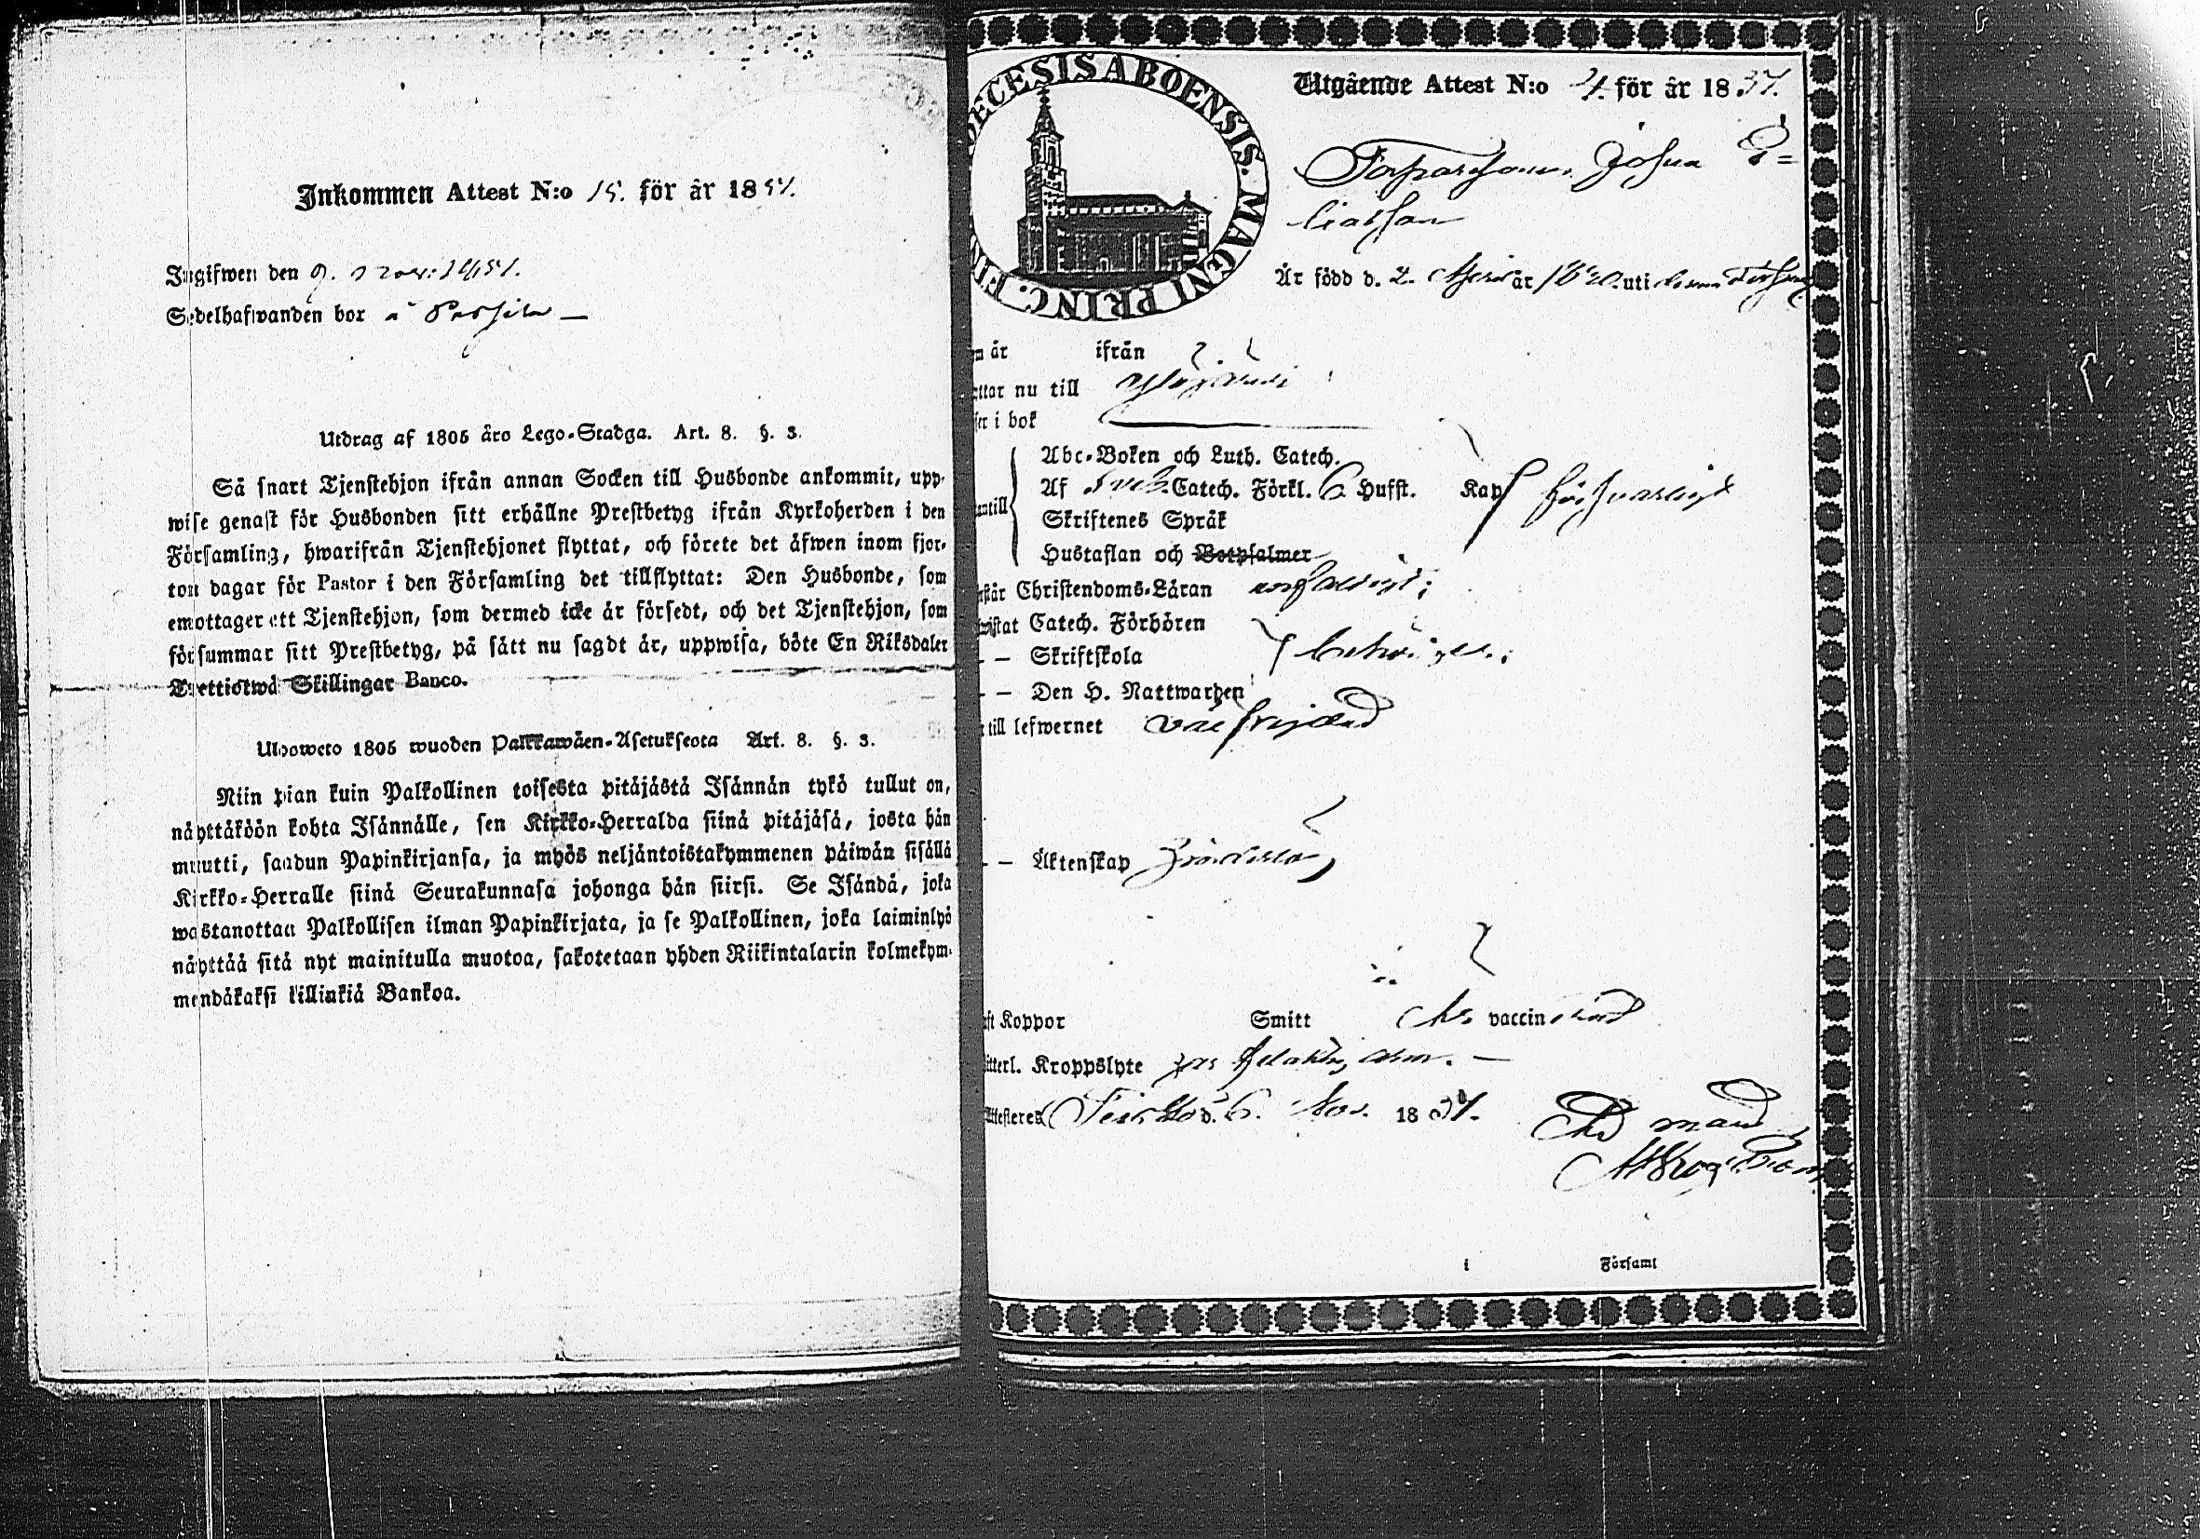 Inkommen Attest N:o 15. för år 1851.
Ingifwen den 9. Nov: 1851.
Sedelhafwanden bor å
Utdrag af 1805 års Lego-Stadga. Art. 8. §. 3.
Så snart Tjenstehjon ifrån annan Socken till Husbonde ankommit, upp-
wise genast för Husbonden sitt erhållne Prestbetyg ifrån Kyrkoherden i den
Församling, hwarifrån Tjenstehjonet flyttat, och förete det äfwen inom fjor-
ton dagar för Pastor i den Församling det tillflyttat: Den Husbonde, som
emottager ett Tjenstehjon, som dermed icke är försedt, och det Tjenstehjon, som
försummar sitt Prestbetyg, på sätt nu sagdt är, uppwisa, böte En Riksdaler
Trettiotwå Skillingar Banco.
Ulosweto 1805 wuoden Palkkawäen-Asetuksesta Art. 8. §. 3.
Niin pian kuin Palkollinen toisesta pitäjästä Isännän tykö tullut on,
näyttäköön kohta Isännälle, sen Kirkko-Herralda siinä pitäjäsä, josta hän
muutti, saadun Papinkirjansa, ja myös neljäntoistakymmenen päiwän sisällä
Kirkko-Herralle siinä Seurakunnasa johonga hän siirsi. Se Isändä, joka
wastanottaa Palkollisen ilman Papinkirjata, ja se Palkollinen, joka laiminlyö
näyttää sitä nyt mainitulla muotoa, sakotetaan yhden Riikintalarin kolmekym-
mendäkaksi killinkiä Bankoa.
DECESIS ABOENSIS. MAGNI PRINC. FIN
Utgående Attest N:o 4. för år 1851.
Johan
Är född d. 2. April år 1820. uti
m år ifrån
ttar nu till
ser i bok
Abc-Boken och Luth. Catech.
Af Sveb. Catech. Förkl. 6 Hufst. Kap försvarligt
antill Skriftenes Språk
Hustaflan och Botpsalmer
står Christendoms-Läran
wistat Catech. Förhören
– – Skriftskola behörigen
– – Den H. Nattwarden
till lefwernet välfrejdad
– – Äktenskap hinderslös
ft Koppor Smitt Är vaccinerad
itterl. Kroppslyte arm. –
Attesteras d. 6. Nov. 1851.
i Församl